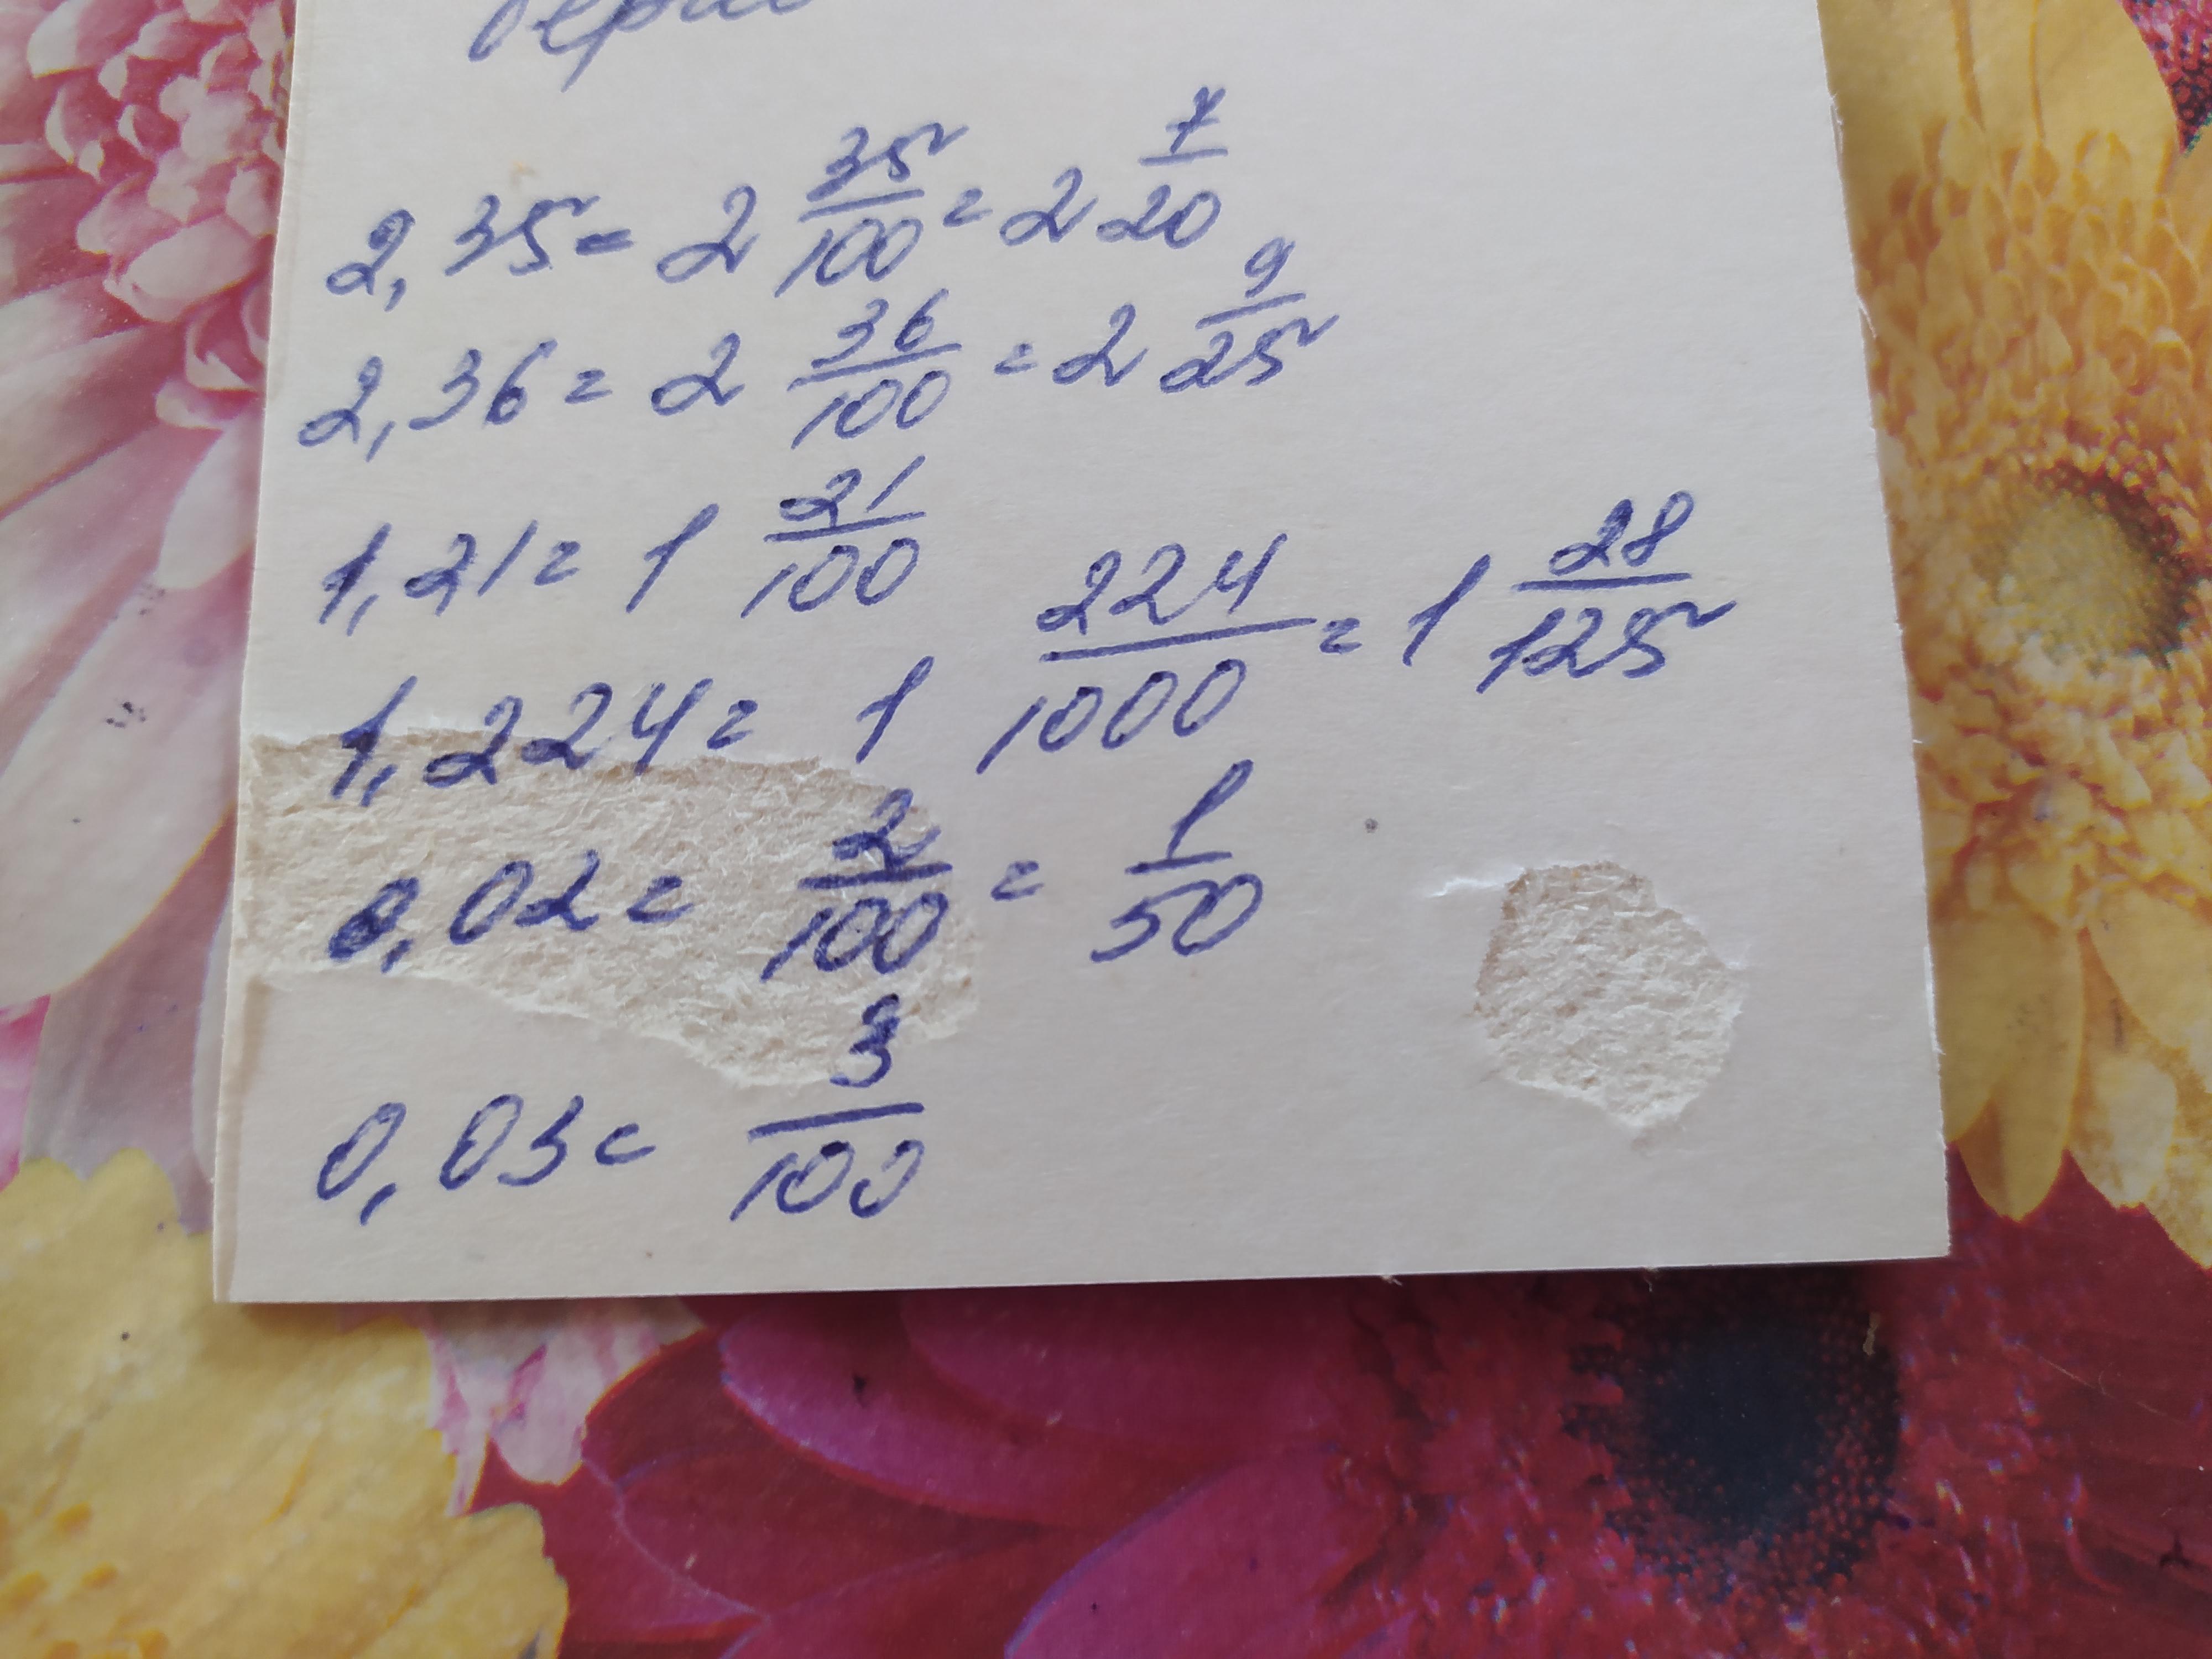 2,35 = 2 35/100 = 2 7/20
2,36 = 2 36/100 = 2 9/25
1,21 = 1 21/100
1,224 = 1 224/1000 = 1 28/125
0,02 = 2/100 = 1/50
0,03 = 3/100